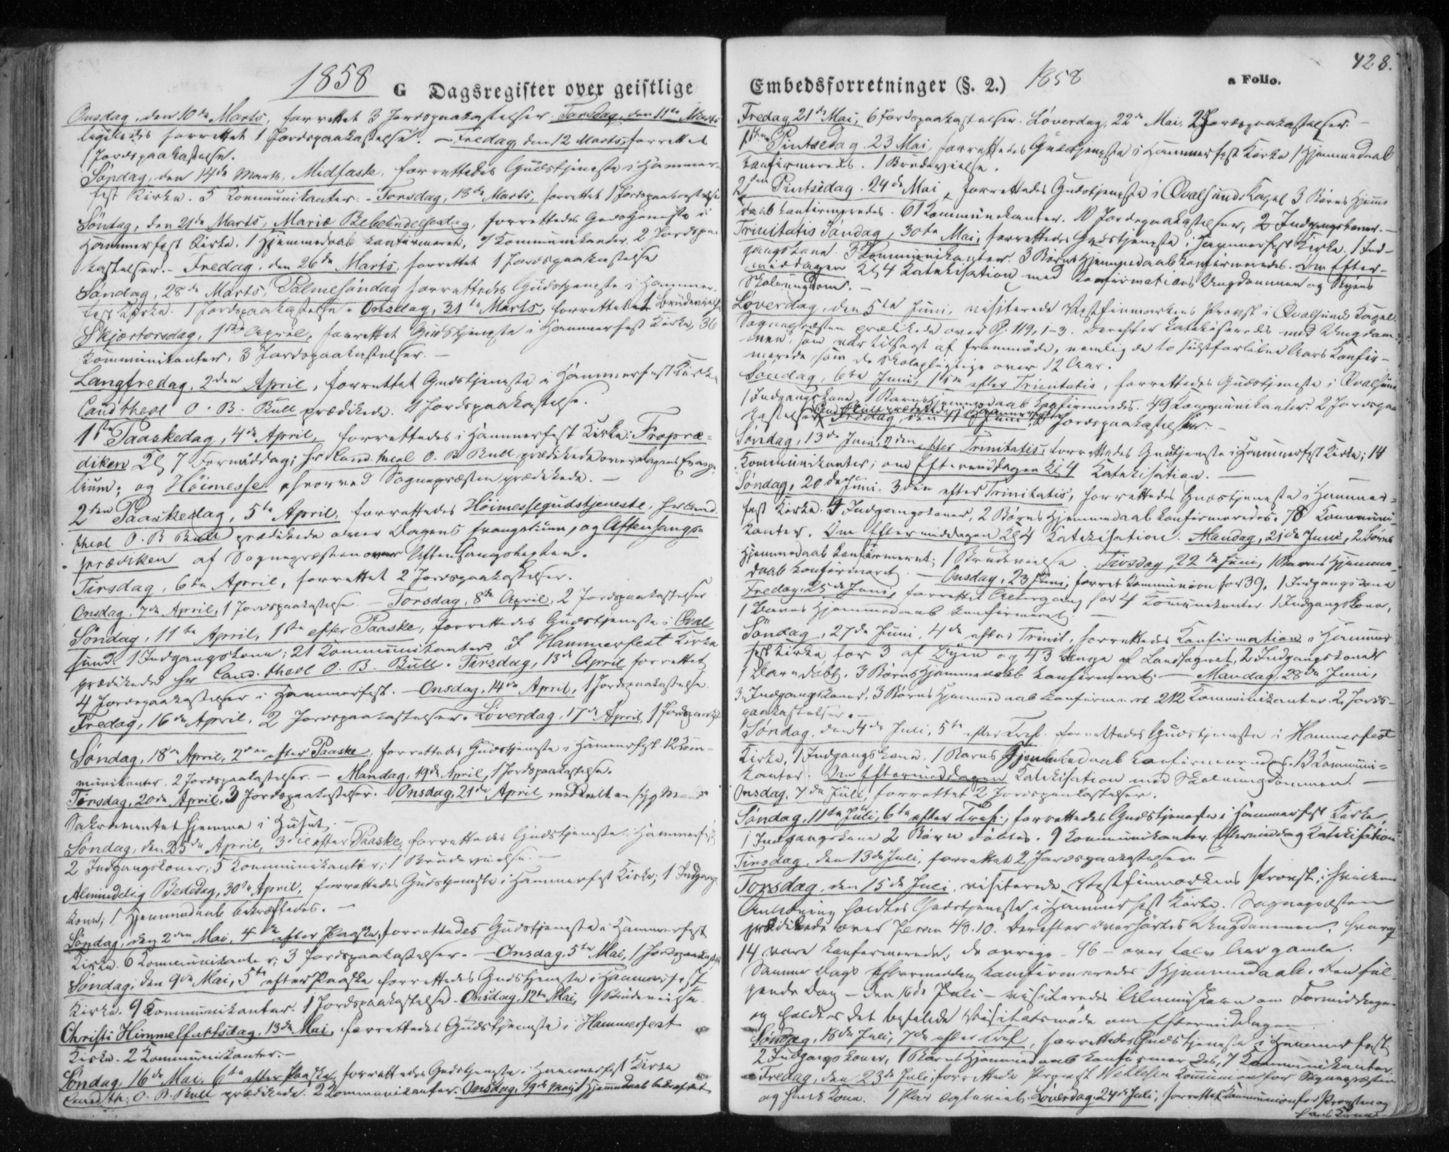 1858 G Dagsregister over geistlige
Onsdag, den 10de Marts, forrettet 3 Jordspaakastelser. Torsdag, den 11te Marts
ligeledes forrettet 1 Jordspaakastelse. – Fredag den 12 Marts, forrettet
1 Jordspaakastelse.
Søndag, den 14de Marts, Midfaste, forrettedes Gudstjeneste i Hammer-
fest Kirke. 5 Kommunikanter. – Torsdag, 18de Marts, forrettet 1 Jordspaakastelse
Søndag, den 21de Marts, Mariæ Bebudelsesdag, forrettedes Gudstjeneste i
Hammerfest Kirke. 1 Hjemmedaab konfirmeret, 7 Kommunikanter. 2 Jordspaa-
kastelser. – Fredag, den 26de Marts, forrettet 1 Jordspaakastelse
Søndag, 28de Marts, Palmesøndag forrettedes Gudstjeneste i Hammer-
fest Kirke. 1 Jordspaakastelse. Onsdag, 31te Marts, forrettet Brudevielse
Skjærtorsdag, 1ste April, forrettet Gudstjeneste i Hammerfest Kirke, 36
Kommunikanter, 3 Jordspaakastelser. –
Langfredag, 2den April, forrettet Gudstjeneste i Hammerfest Kirke,
Cand. theol O. B. Bull prædikede. 4 Jordspaakastelse.
1ste Paaskedag, 4de April, forrettedes i Hammerfest Kirke: Fropræ-
diken Kl 7 Formiddag; Hr Cand. theol O. B. Bull prædikede over Dagens Evange-
lium; og Høimesse, hvorved Sognepræsten prædikede. –
2den Paaskedag, 5te April, forrettedes Høimessegudstjeneste. Hr Cand.
theol O. B. Bull prædikede over Dagens Evangelium, og Aftensangs-
prædiken af Sognepræsten over Aftensangsteksten.
Tirsdag, 6te April, forrettet 2 Jordspaakastelser.
Onsdag, 7de April, 1 Jordspaakastelse. – Torsdag, 8de April, 2 Jordspaakastelser
Søndag, 11te April, 1ste efter Paaske, forrettedes Gudstjeneste i Qval-
sund. 1 Indgangskone; 21 Kommunikanter. I Hammerfest Kirke
prædikede Hr Cand. theol O. B. Bull. Tirsdag, 13de April forrettet
4 Jordspaakastelser i Hammerfest. – Onsdag, 14de April, 1 Jordspaakastelse.
Fredag, 16de April, 2 Jordspaakastelser. Løverdag, 17de April, 1 Jordspaakst.
Søndag, 18de April, 2den efter Paaske, forrettedes Gudstjeneste i Hammerfest 12 Kom-
munikanter. 2 Jordspaakastelser. – Mandag, 19de April, 1 Jordspaakastelse.
Tirsdag, 20de April, 3 Jordspaakastelser. Onsdag, 21de April meddeelt en syg
Sakramentet hjemme i Huset. –
Søndag, den 25de April, 3die efter Paaske, forrettedes Gudstjeneste i Hammerfest
2 Indgangskoner, 5 Kommunikanter, 1 Brudevielse. –
Almindelig Bededag, 30te April, forrettedes Gudstjeneste i Hammerfest Kirke, 1 Indgangs-
kone, 1 Hjemmedaab bekræftedes. –
Søndag, den 2den Mai, 4de efter Paaske, forrettedes Gudstjeneste i Hammerfest
Kirke. 6 Kommunikanter, 3 Jordspaakastelser. – Onsdag, 5te Mai, 1 Jordspaakastelse
Søndag, den 9de Mai, 5te efter Paaske forrettedes Gudstjeneste i Hammerfest
Kirke. 9 Kommunikanter. 1 Jordspaakastelse. Onsdag, 12te Mai, 1 Brudevielse.
Christi Himmelfartsdag, 13de Mai, forrettedes Gudstjeneste i Hammerfest
Kirke. 2 Kommunikanter. –
Søndag, 16de Mai, 6te efter Paaske, forrettedes Gudstjeneste i Hammerfest Kirke
Cand. th. O. B. Bull prædikede. 2 Kommunikanter. Onsdag, 19de Mai, 1 Hjemmedaab bekræftet
Embedsforretninger (§. 2.) 1858 a Folio. 428.
Fredag 21de Mai, 6 Jordspaakastelser. Løverdag, 22de Mai, 2 Jordspaakastelser. –
1ste Pintsedag. 23 Mai, forrettedes Gudstjeneste i Hammerfest Kirke 1 Hjemmedaab
konfirmeredes. 1 Brudevielse.
2den Pintsedag. 24de Mai, forrettedes Gudstjeneste i Qvalsund Kapel 3 Børns Hjemme-
daab konfirmeredes. 61 Kommunikanter. 10 Jordspaakastelser, 2 Indgangskoner. –
Trinitatis Søndag, 30te Mai, forrettedes Gudstjeneste i Hammerfest Kirke, 1 Ind-
gangskone. 3 Kommunikanter. 3 Børns Hjemmedaab konfirmeredes. Om Efter-
middagen Kl 4 Katekisation med Konfirmations Ungdommen og Byens
Skoleungdom. –
Løverdag, den 5te Juni, visiterede Vestfinmarkens Provst i Qvalsunds Kapel
Sognepræsten prædikede over Ps. 119, 1–3. Derefter katekiseredes med Ungdom-
men, som var tilsagt at fremmøde, nemlig de to sidstforløbne Aars Konfir-
merede, som de skolepligtige over 12 Aar.
Søndag, 6te Juni, 1ste efter Trinitatis, forrettedes Gudstjeneste i Qvalsund
1 Indgangskone, 1 Barns Hjemmedaab konfirmeredes. 49 Kommunikanter. 2 Jordspaa-
kastelser. Fredag, den 11 Juni, 2 Jordspaakastelser. –
Søndag, 13de Juni, 2den efter Trinitatis, forrettedes Gudstjeneste i Hammerfest Kirke; 14
Kommunikanter; om Eftermiddagen Kl 4 Katekisation. –
Søndag, 20de Juni. 3die efter Trinitatis, forrettedes Gudstjeneste i Hammer-
fest Kirke. 4 Indgangskoner, 2 Børns Hjemmedaab konfirmeredes, 78 Kommuni-
kanter. Om Eftermiddagen Kl 4 Katekisation. Mandag, 21de Juni, 2 Børns
Hjemmedaab konfirmeret; 1 Brudevielse. Tirsdag, 22de Juni, 1 Barns Hjemme-
daab konfirmeret. – Onsdag, 23 Juni, forrettet Kommunion for 39, 1 Indgangskone
Fredag, 25de Juni, forrettet Altergang for 4 Kommunikanter 1 Indgangskone,
1 Barns Hjemmedaab konfirmeret
Søndag, 27de Juni, 4de efter Trinit., forrettedes Konfirmation i Hammer-
fest Kirke for 3 af Byen og 43 Unge af Landsognet, 2 Indgangskoner
1 Barn døbt. 3 Børns Hjemmedaab konfirmeret. – Mandag 28de Juni,
3 Indgangskoner, 3 Børns Hjemmedaab konfirmeret 212 Kommunikanter 2 Jords-
paakastelser. –
Søndag, den 4de Juli, 5te efter Tref. forrettedes Gudstjeneste i Hammerfest
Kirke, 1 Indgangskone, 1 Barns Hjemmedaab konfirmeredes. 13 Kommuni-
kanter. Om Eftermiddagen Katekisation med Skoleungdommen –
Onsdag, 7de Juli, forrettet 2 Jordspaakastelser.
Søndag, 11te Juli, 6te efter Tref., forrettedes Gudstjeneste i Hammerfest Kirke,
1 Indgangskone 2 Børn døbtes. 9 Kommunikanter. Eftermiddag Katekisation
Tirsdag, den 13de Juli, forrettet 2 Jordspaakastelser –
Torsdag, den 15de Juli, visiterede Vestfinmarkens Provst, i hvilken
Anledning holdtes Gudstjeneste i Hammerfest Kirke. Sognepræsten
prædikede over. Derefter overhørtes Ungdommen, hvoraf
14 vare Konfirmerede, de øvrige – 46 – over tolv Aar gamle.
Samme Dags Eftermiddag konfirmeredes 1 Hjemmedaab. Den føl-
gende Dag – den 16de Juli – visiteredes Almueskolen om Formiddagen
og holdtes det befalede Visitatsmøde om Eftermiddagen.
Søndag, 18de Juli, 7de efter Tref., forrettedes Gudstjeneste i Hammerfest
2 Indgangskoner, 1 Barns Hjemmedaab konfirmeredes, 7 Kommunikanter.
Fredag, den 23de Juli, forrettede Provst Kommunion for Sognepræsten
og hans Kone. 1 Par ægteviet. Løverdag, 24de Juli, forrettet Kommunion for Provsten og
hans Kone –